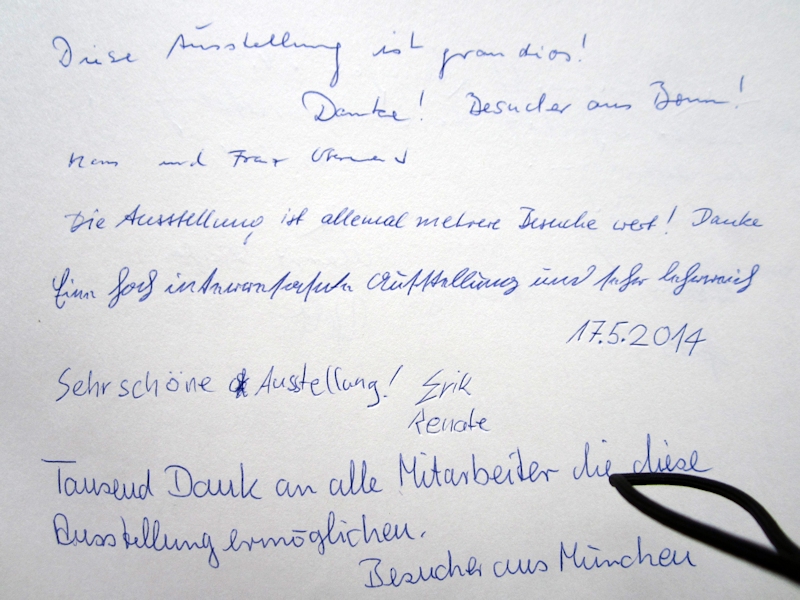 Diese Ausstellung ist grandios!
Danke! Besucher aus Bonn!
und Frau
Die Ausstellung ist allemal mehrere Besuche wert! Danke
Eine hoch interessante Ausstellung und sehr lehrreich
17.5.2014
Sehr schöne Ausstellung! Erik
Renate
Tausend Dank an alle Mitarbeiter die diese
Ausstellung ermöglichen.
Besucher aus München